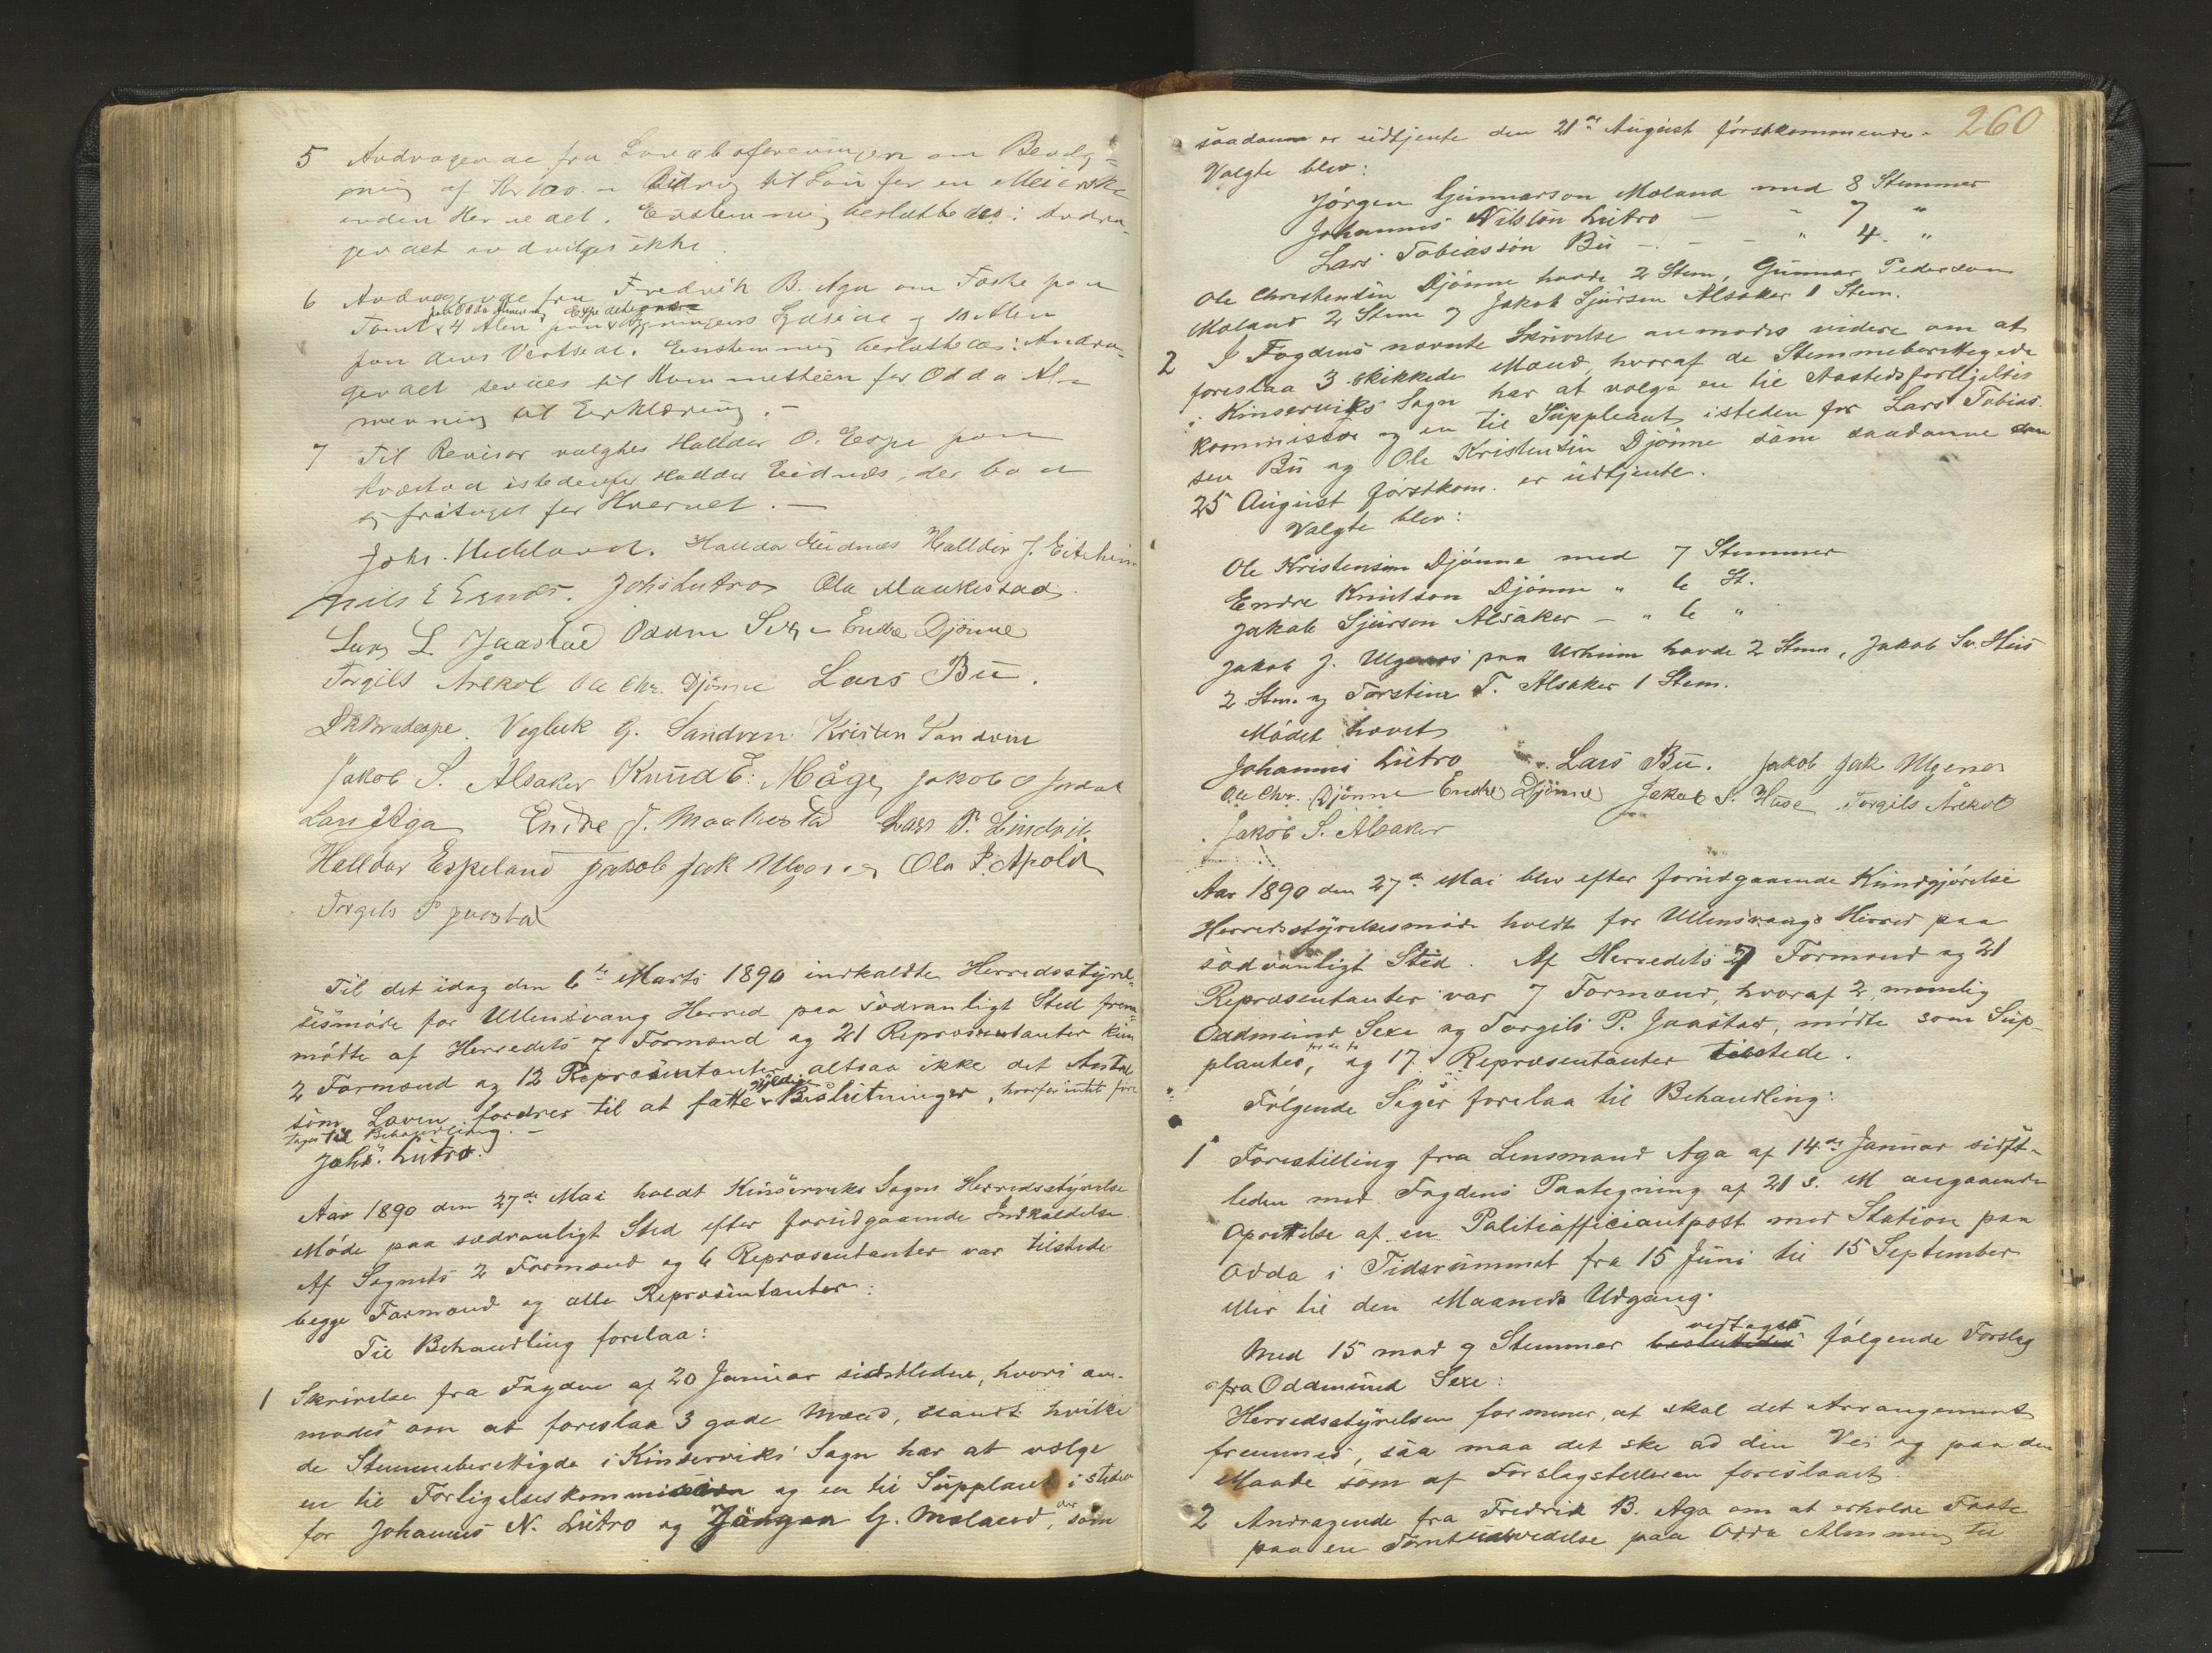 5 Andragende fra Landboforeningen om Bevilg-
ning af Kr 100.- Bidrag til Løn for en Meierske
inden Herredet. Enstemmig besluttedes: Andra-
gendet indvilges ikke.
6 Andragende fra Fredrik B. Aga om Fæste paa
paa Odda Almening Expeditions
Tomt 4 Alen paa Bygningens Sydside og 10 Alen
paa dens Vestside. Enstemmig besluttedes: Andra-
gendet sendes til Kommitteen for Odda Al-
menning til Erklæring. -
7 Til Revisor valgtes Halldor O. Espe paa
Kvæstad istedenfor Halldor Eidnæs, der bad
sig fritaget for Hvervet. -
Johs. Helland. Halldor Eidnæs Halldor J. Eitrheim
Nils E Ernæs. Johs Lutro Ola Maakestad
Lars L. Jaastad Oddm Sexe Endre Djönne
Torgils Årekol Ole Chr. Djönne Lars Bu.
Vigleik G. Sandven Kristen Sandven
Jakob S. Alsaker Knud E. Måge Jakob O Jordal
Lars J Aga Endre J. Maakestad Lars P. Lindvik
Halldor Espeland Jakob Jak Ulgenes Ola P. Apold
Torgils P Jaastad
Til det idag den 6te Marts 1890 indkaldte Herredsstyrel-
sesmöde for Ullensvang Herred paa sædvanligt Sted frem-
mödte af Herredets 7 Formænd og 21 Repræsentanter kun
2 Formænd og 12 Repræsentanter, altsaa ikke det Antal
som Loven fordrer til at fatte gyldige Beslutninger, hvorfor intet fore
tages til Behandling. -
Johs. Lutro.
Aar 1890 den 27de Mai holdt Kinserviks Sogns Herredsstyrelse
Möde paa sædvanligt Sted efter forudgaaende Indkaldelse.
Af Sognets 2 Formænd og 6 Repræsentanter var tilstede
begge Formænd og alle Repræsentanter.
Til Behandling forelaa:
1 Skrivelse fra Fogden af 20 Januar sidstleden, hvori an-
modes om at foreslaa 3 gode Mænd, blandt hvilke
de Stemmeberettigede i Kinserviks Sogn har at vælge
en til Forligelseskommissær og en til Supplant i steden
for Johannes N. Lutro og Jörgen G. Moland, der som
260
saadanne er udtjente den 21de August förstkommende.
Valgte blev:
Jörgen Gunnarson Moland med 8 Stemmer
Johannes Nilsson Lutro - " 7 "
Lars Tobiasson Bu - - - " 4 "
Ole Christensen Djönne havde 2 Stem, Gunnar Pederson
Moland 2 Stem og Jakob Sjurson Alsaker 1 Stem.
2 I Fogdens nævnte Skrivelse anmodes videre om at
foreslaa 3 skikkede Mænd, hvoraf de Stemmeberettigede
i Kinserviks Sogn har at vælge en til Aastedsforligelses
kommissær og en til Suppleant isteden for Lars Tobias
sen Bu og Ole Kristensen Djönne som saadanne den
25 August förstkom. er udtjente.
Valgte blev:
Ole Kristensen Djönne med 7 Stemmer
Endre Knutson Djönne " 6 St.
Jakob Sjurson Alsaker - " 6 "
Jakob J. Ulgenes paa Urheim havde 2 Stem, Jakob Sv. Hus
2 Stem. og Torstein T. Alsaker 1 Stem.
Mödet hævet
Johannes Lutro Lars Bu. Jakob Jak Ulgenes
Ole Chr. Djönne Endre Djönne Jakob S. Huse Torgils Årekol
Jakob S. Alsaker
Aar 1890 den 27de Mai blev efter forudgaaende Kundgjörelse
Herredsstyrelsesmöde holdt for Ullensvangs Herred paa
sædvanligt Sted. Af Herredets 7 Formænd og 21
Repræsentanter var 7 Formænd, hvoraf 2, nemlig
Oddmund Sexe og Torgils P. Jaastad, mödte som Sup-
planter, for de to og 17 Repræsentanter tilstede.
Fölgende Sager forelaa til Behandling:
1 Forestilling fra Lensmand Aga af 14de Januar sidst-
leden med Fogdens Paategning af 21 s. M angaaende
Oprettelse af en Politiofficiantpost med Station paa
Odda i Tidsrummet fra 15 Juni til 15 September
eller til den Maaneds Udgang.
Med 15 mod 9 Stemmer besluttedes vedtages fölgende Forslag
fra Oddmund Sexe:
Herredsstyrelsen formener, at skal det Arrangement
fremmes, saa maa det ske ad den Vei og paa den
Maade som af Forslagstilleren foreslaaet.
2 Andragende fra Fredrik B. Aga om at erholde Fæste
paa en Tomtudvidelse paa Odda Almening til